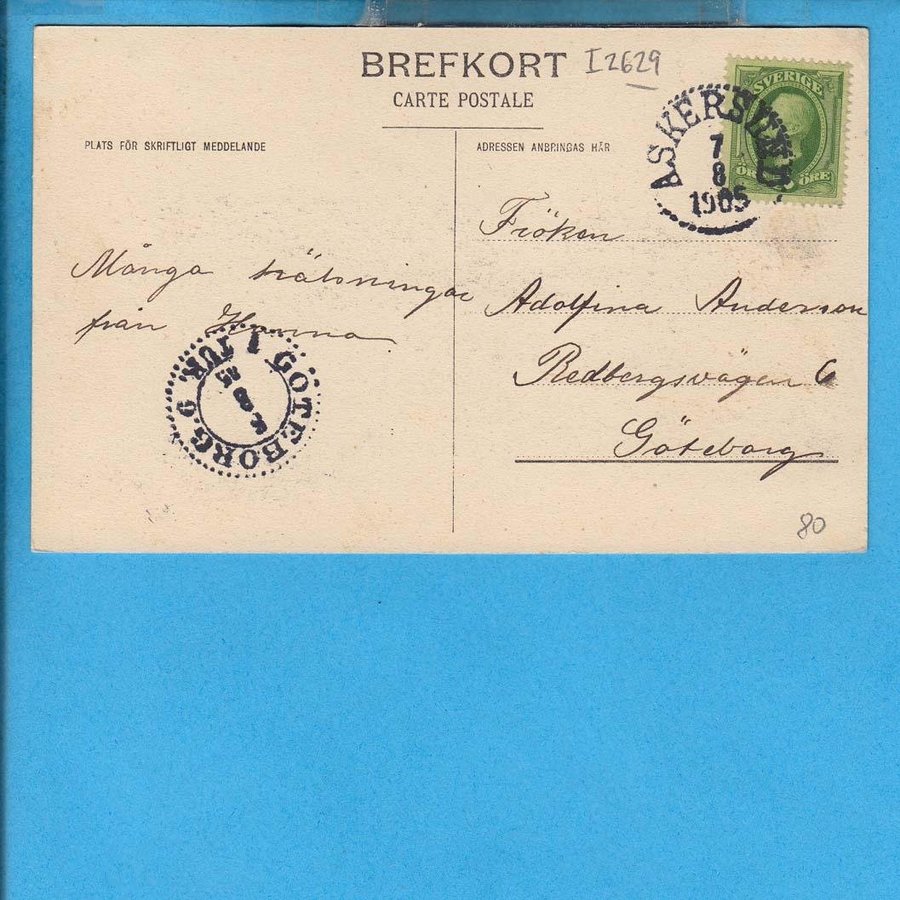 BREFKORT I2629
CARTE POSTALE
PLATS FÖR SKRIFTLIGT MEDDELANDE
ADRESSEN ANBRINGAS HÄR
SVERIGE
ÖRE
ASKERSUND
7
8
1905
Många hälsningar
från Hanna
Fröken
Adolfina Anderson
Redbergsvägen 6
Göteborg
GÖTEBORG 1 TUR. 9
8
80